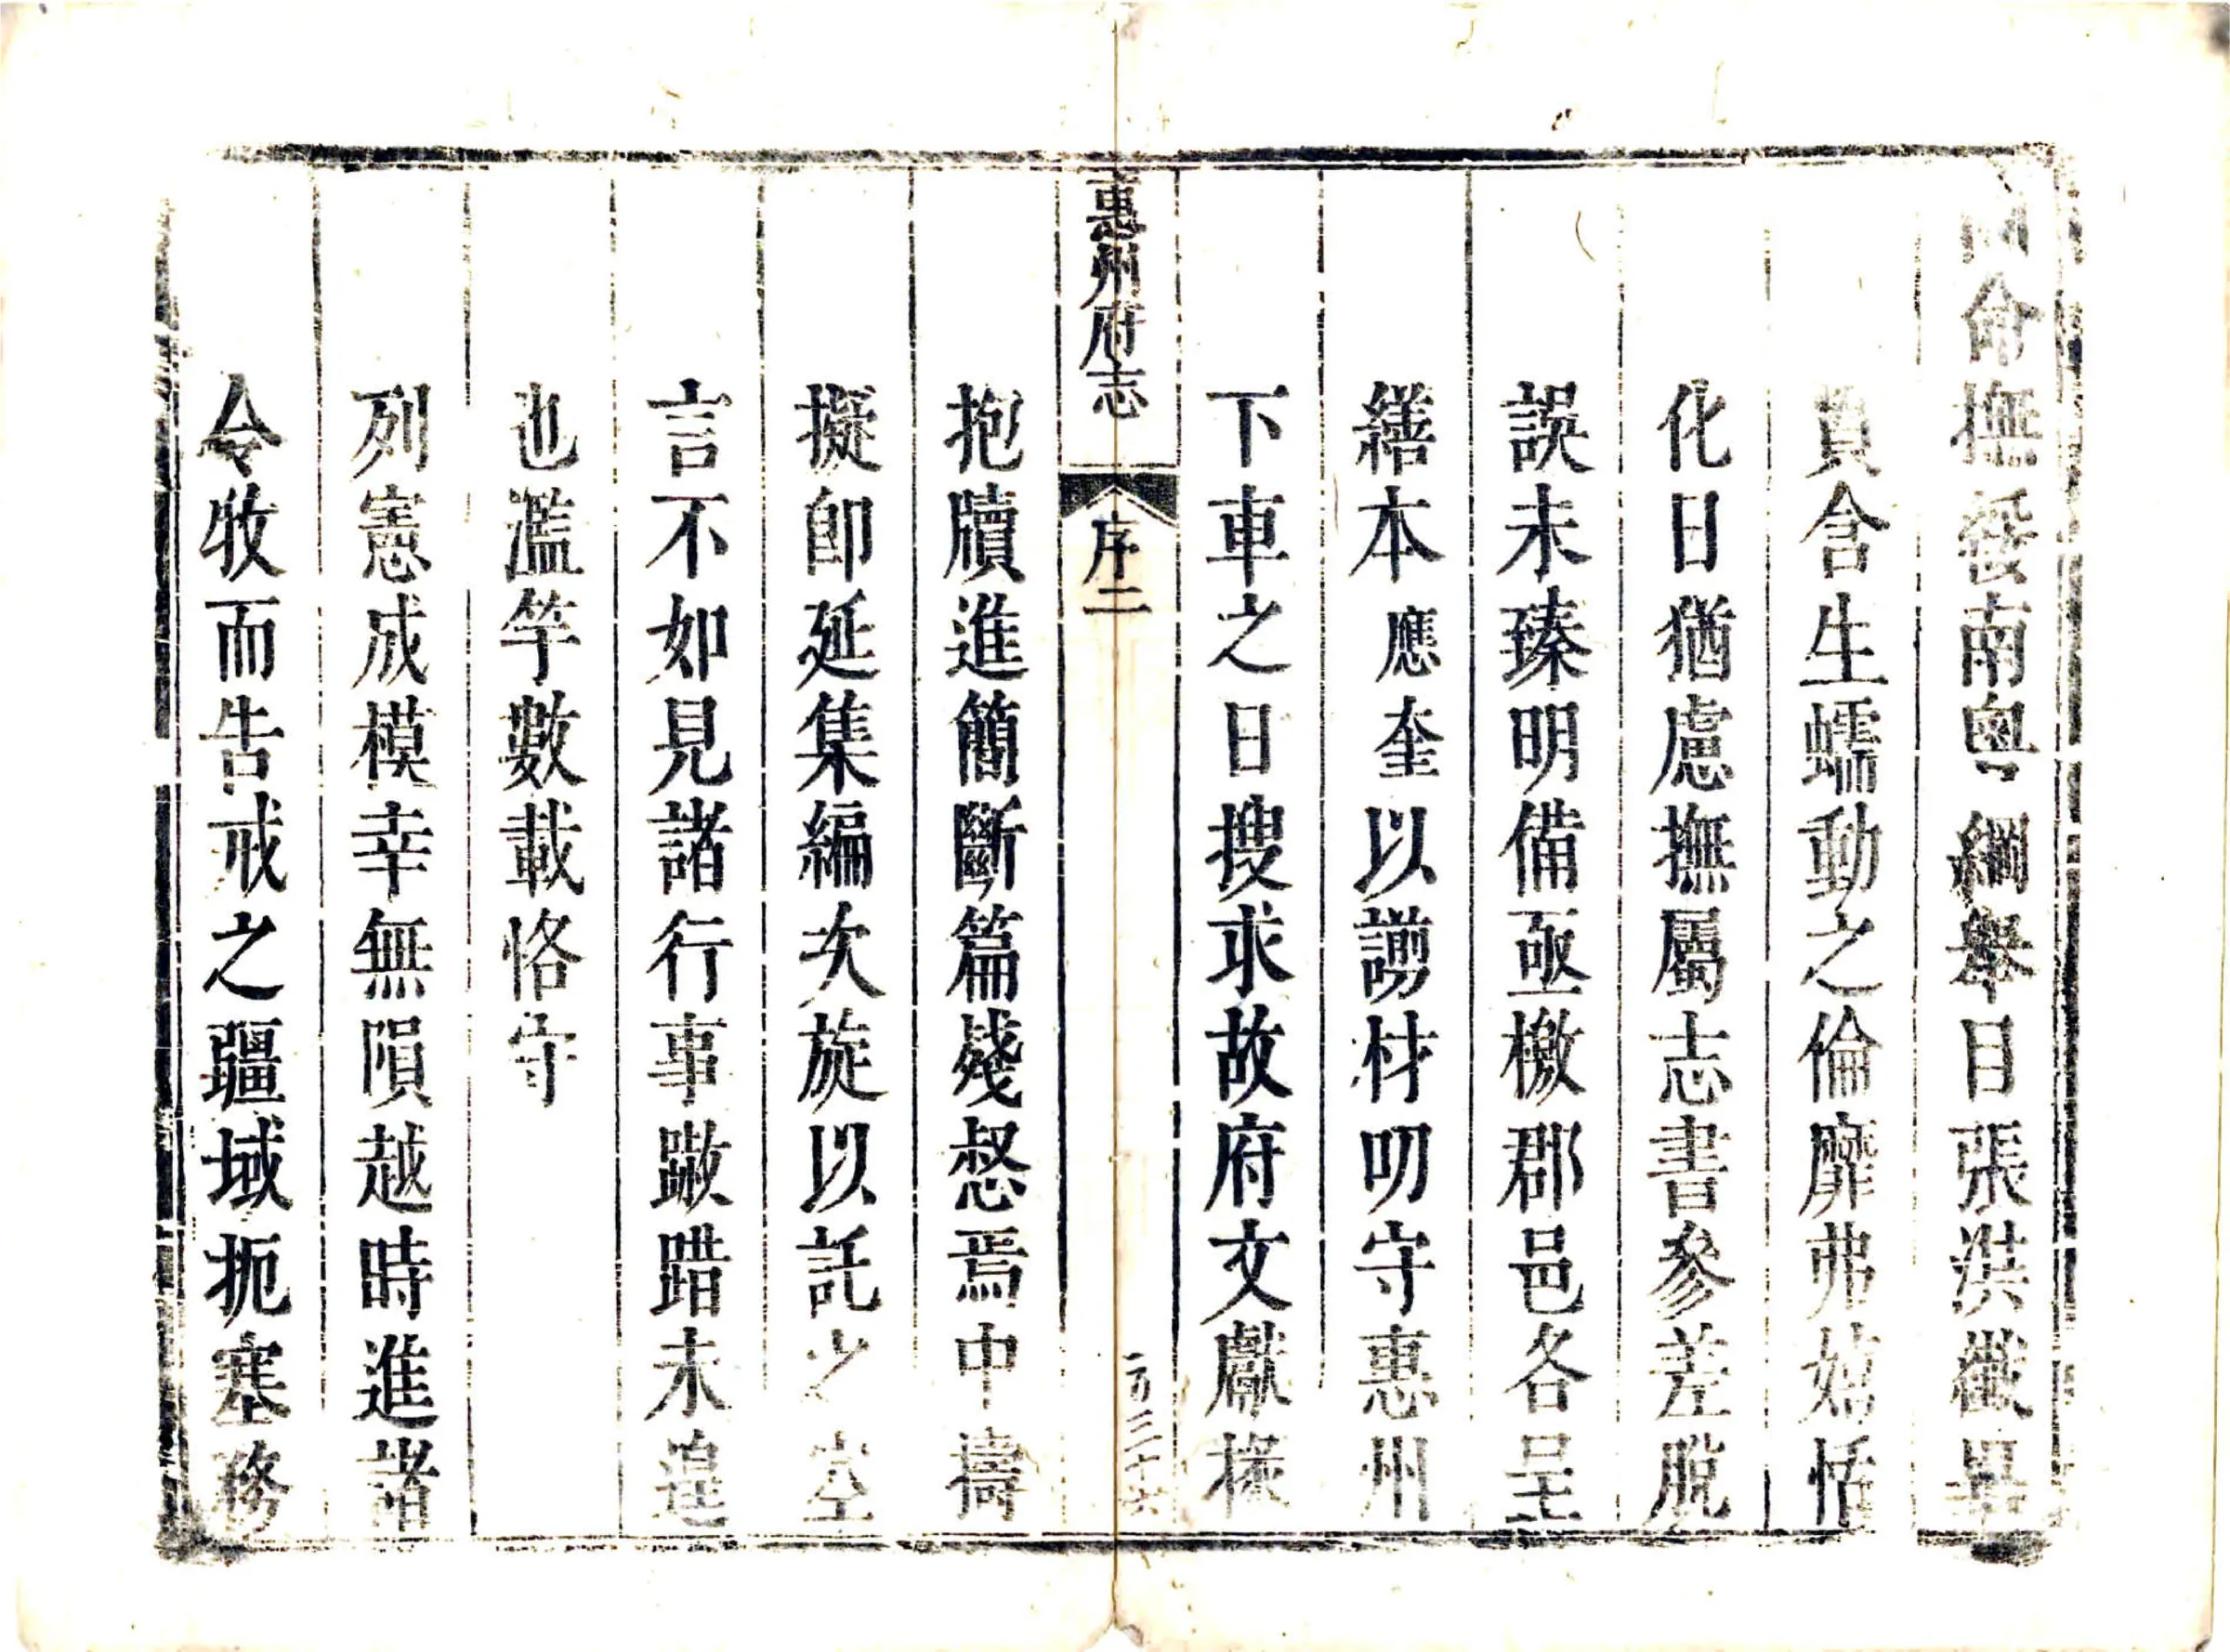 命撫綏南粵綱舉目張洪纖畢
貫含生蠕動之倫靡弗嬉恬
化日猶慮撫屬志書參差脫
誤未臻明備亟檄郡邑各呈
繕本應奎以謭材叨守惠州
下車之日搜求故府文獻掾
惠州府志
序二
抱牘進簡斷篇殘惄焉中擣
擬卽延集編次旋以託少空
言不如見諸行事蹴踖未遑
也濫竽數載恪守
列憲成模幸無隕越時進諸
令牧而告戒之疆域扼塞務